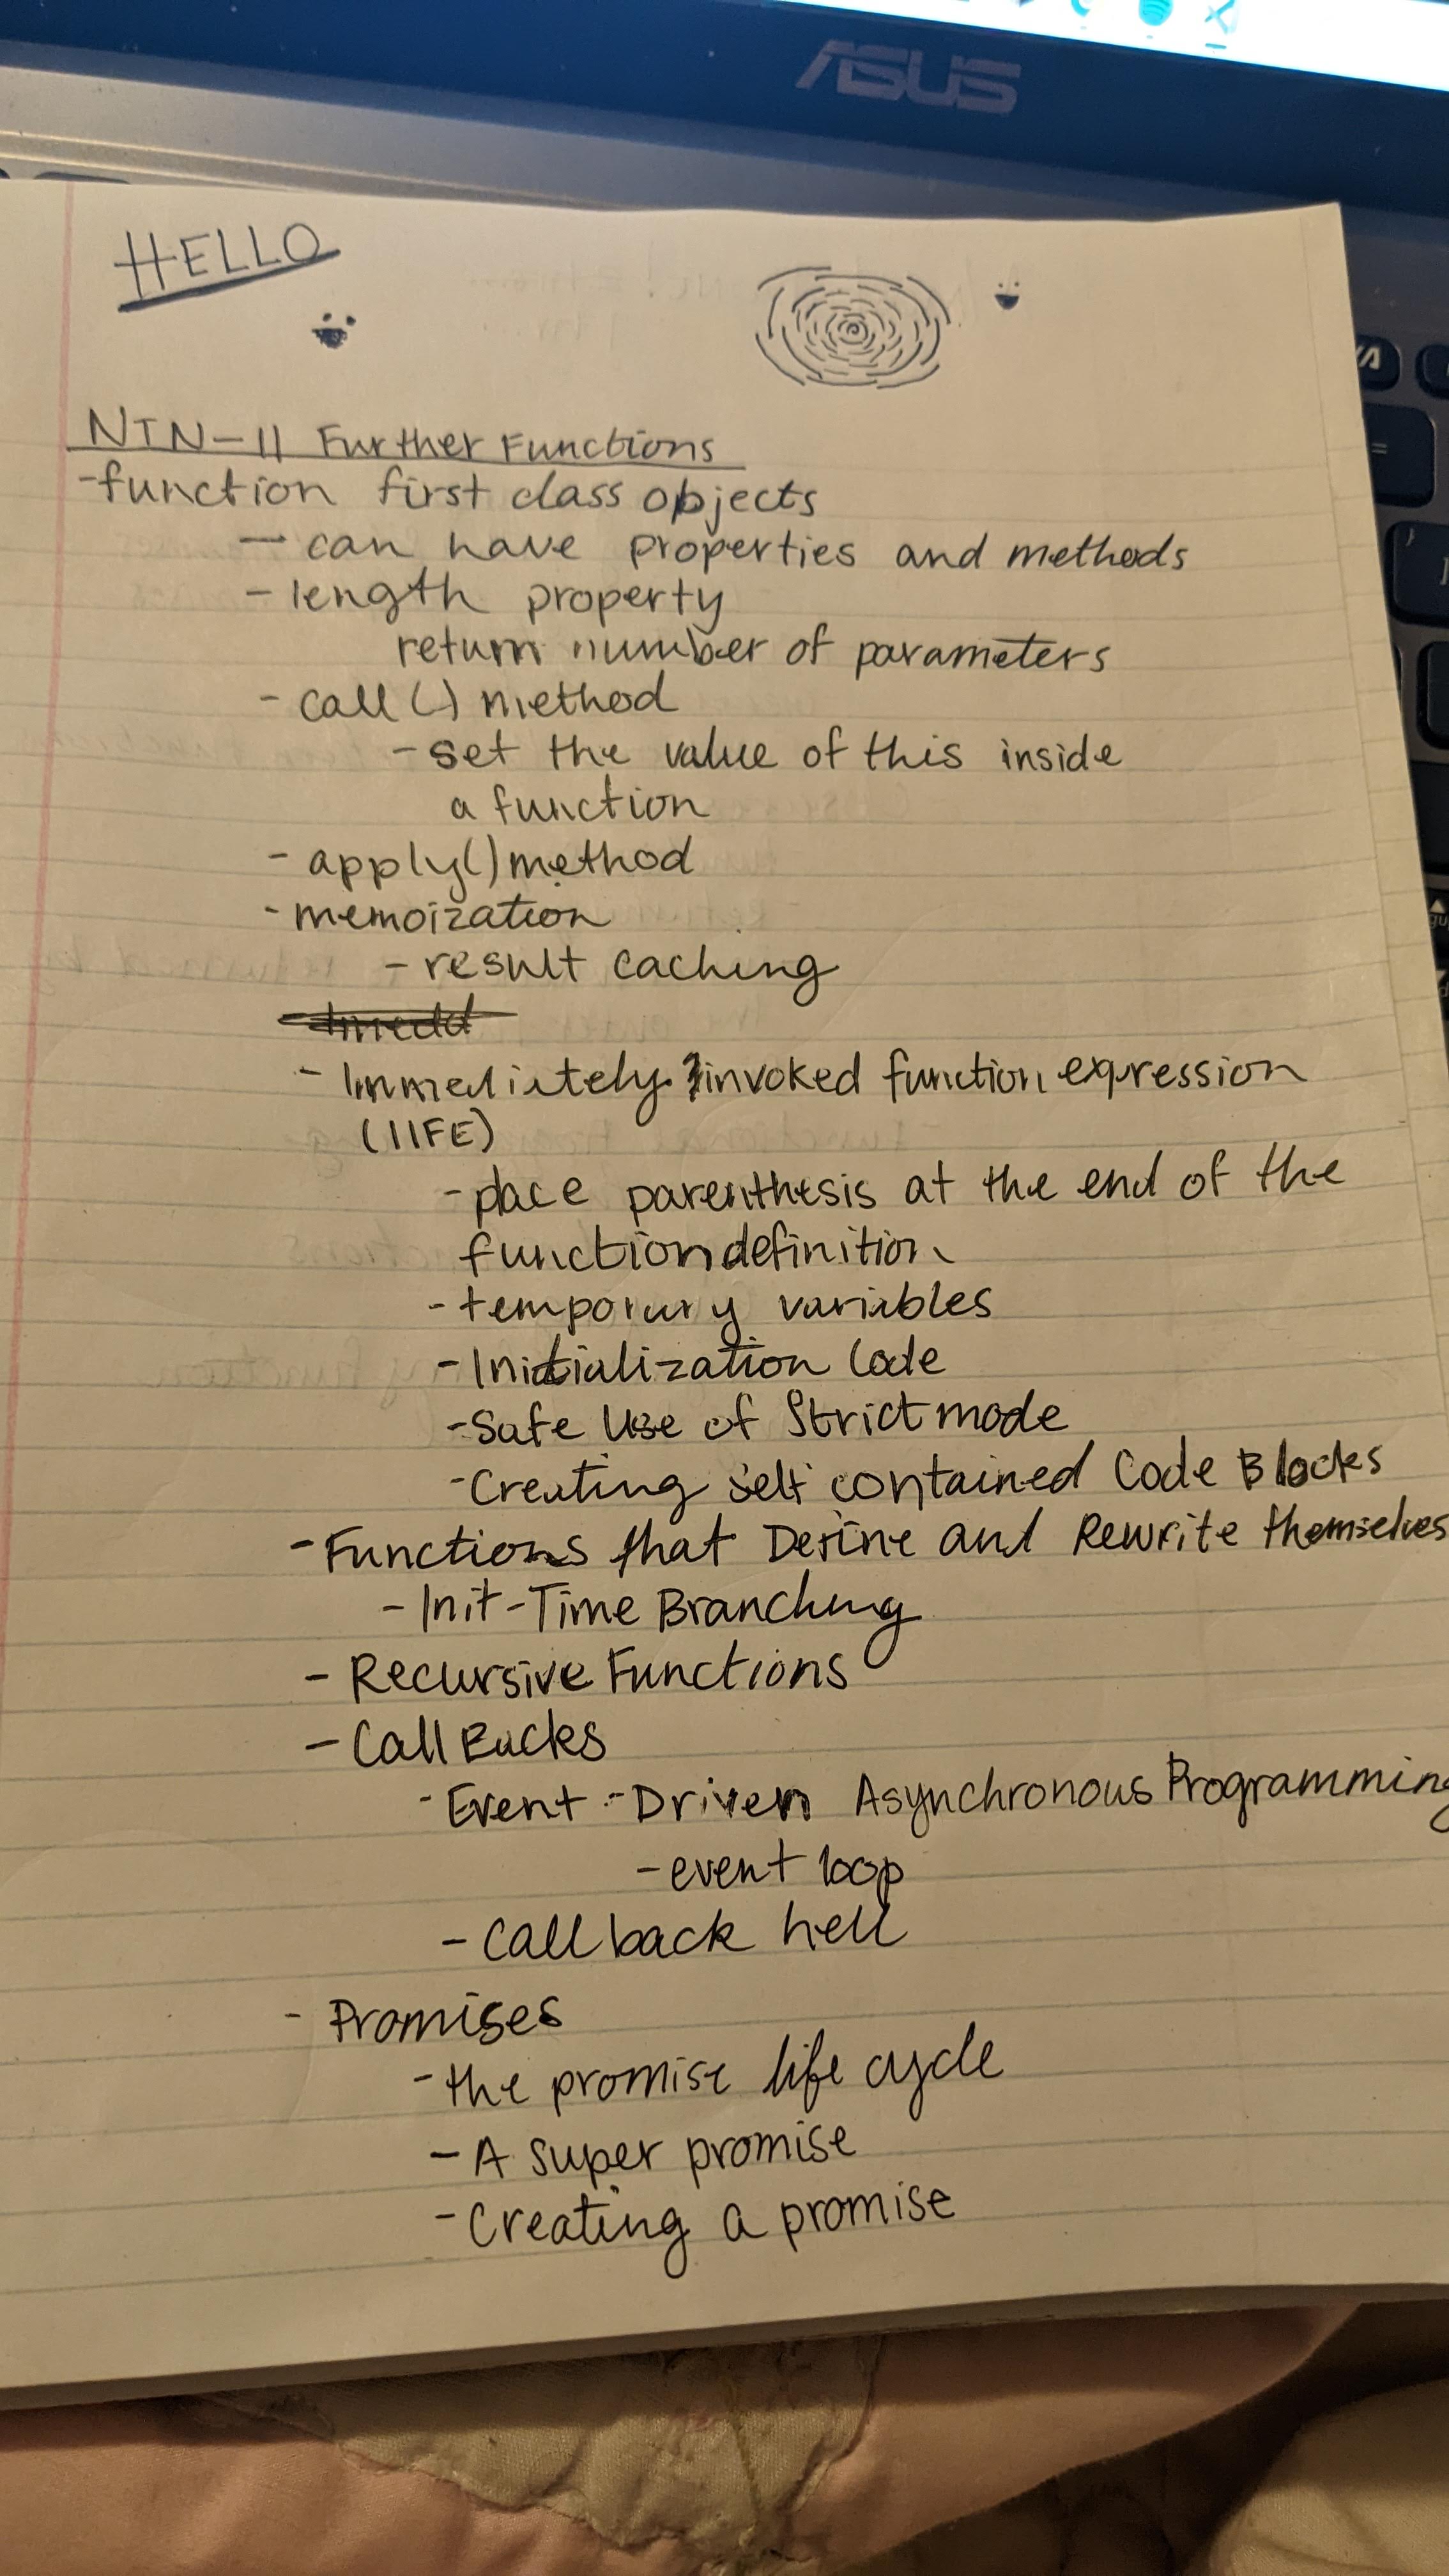 ASUS
HELLO
NTN-11 Further Functions
-function first class objects
- can have properties and methods
- length property
return number of parameters
- call() method
- set the value of this inside
a function
- apply() method
- memoization
- result caching
- Immediately invoked function expression
(IIFE)
- place parenthesis at the end of the
function definition
- temporary variables
- Initialization Code
- Safe Use of Strict mode
- Creating self contained Code Blocks
- Functions that Define and Rewrite themselves
- Init-Time Branching
- Recursive Functions
- Call Backs
- Event-Driven Asynchronous Programming
- event loop
- Callback hell
- Promises
- the promise life cycle
- A super promise
- Creating a promise